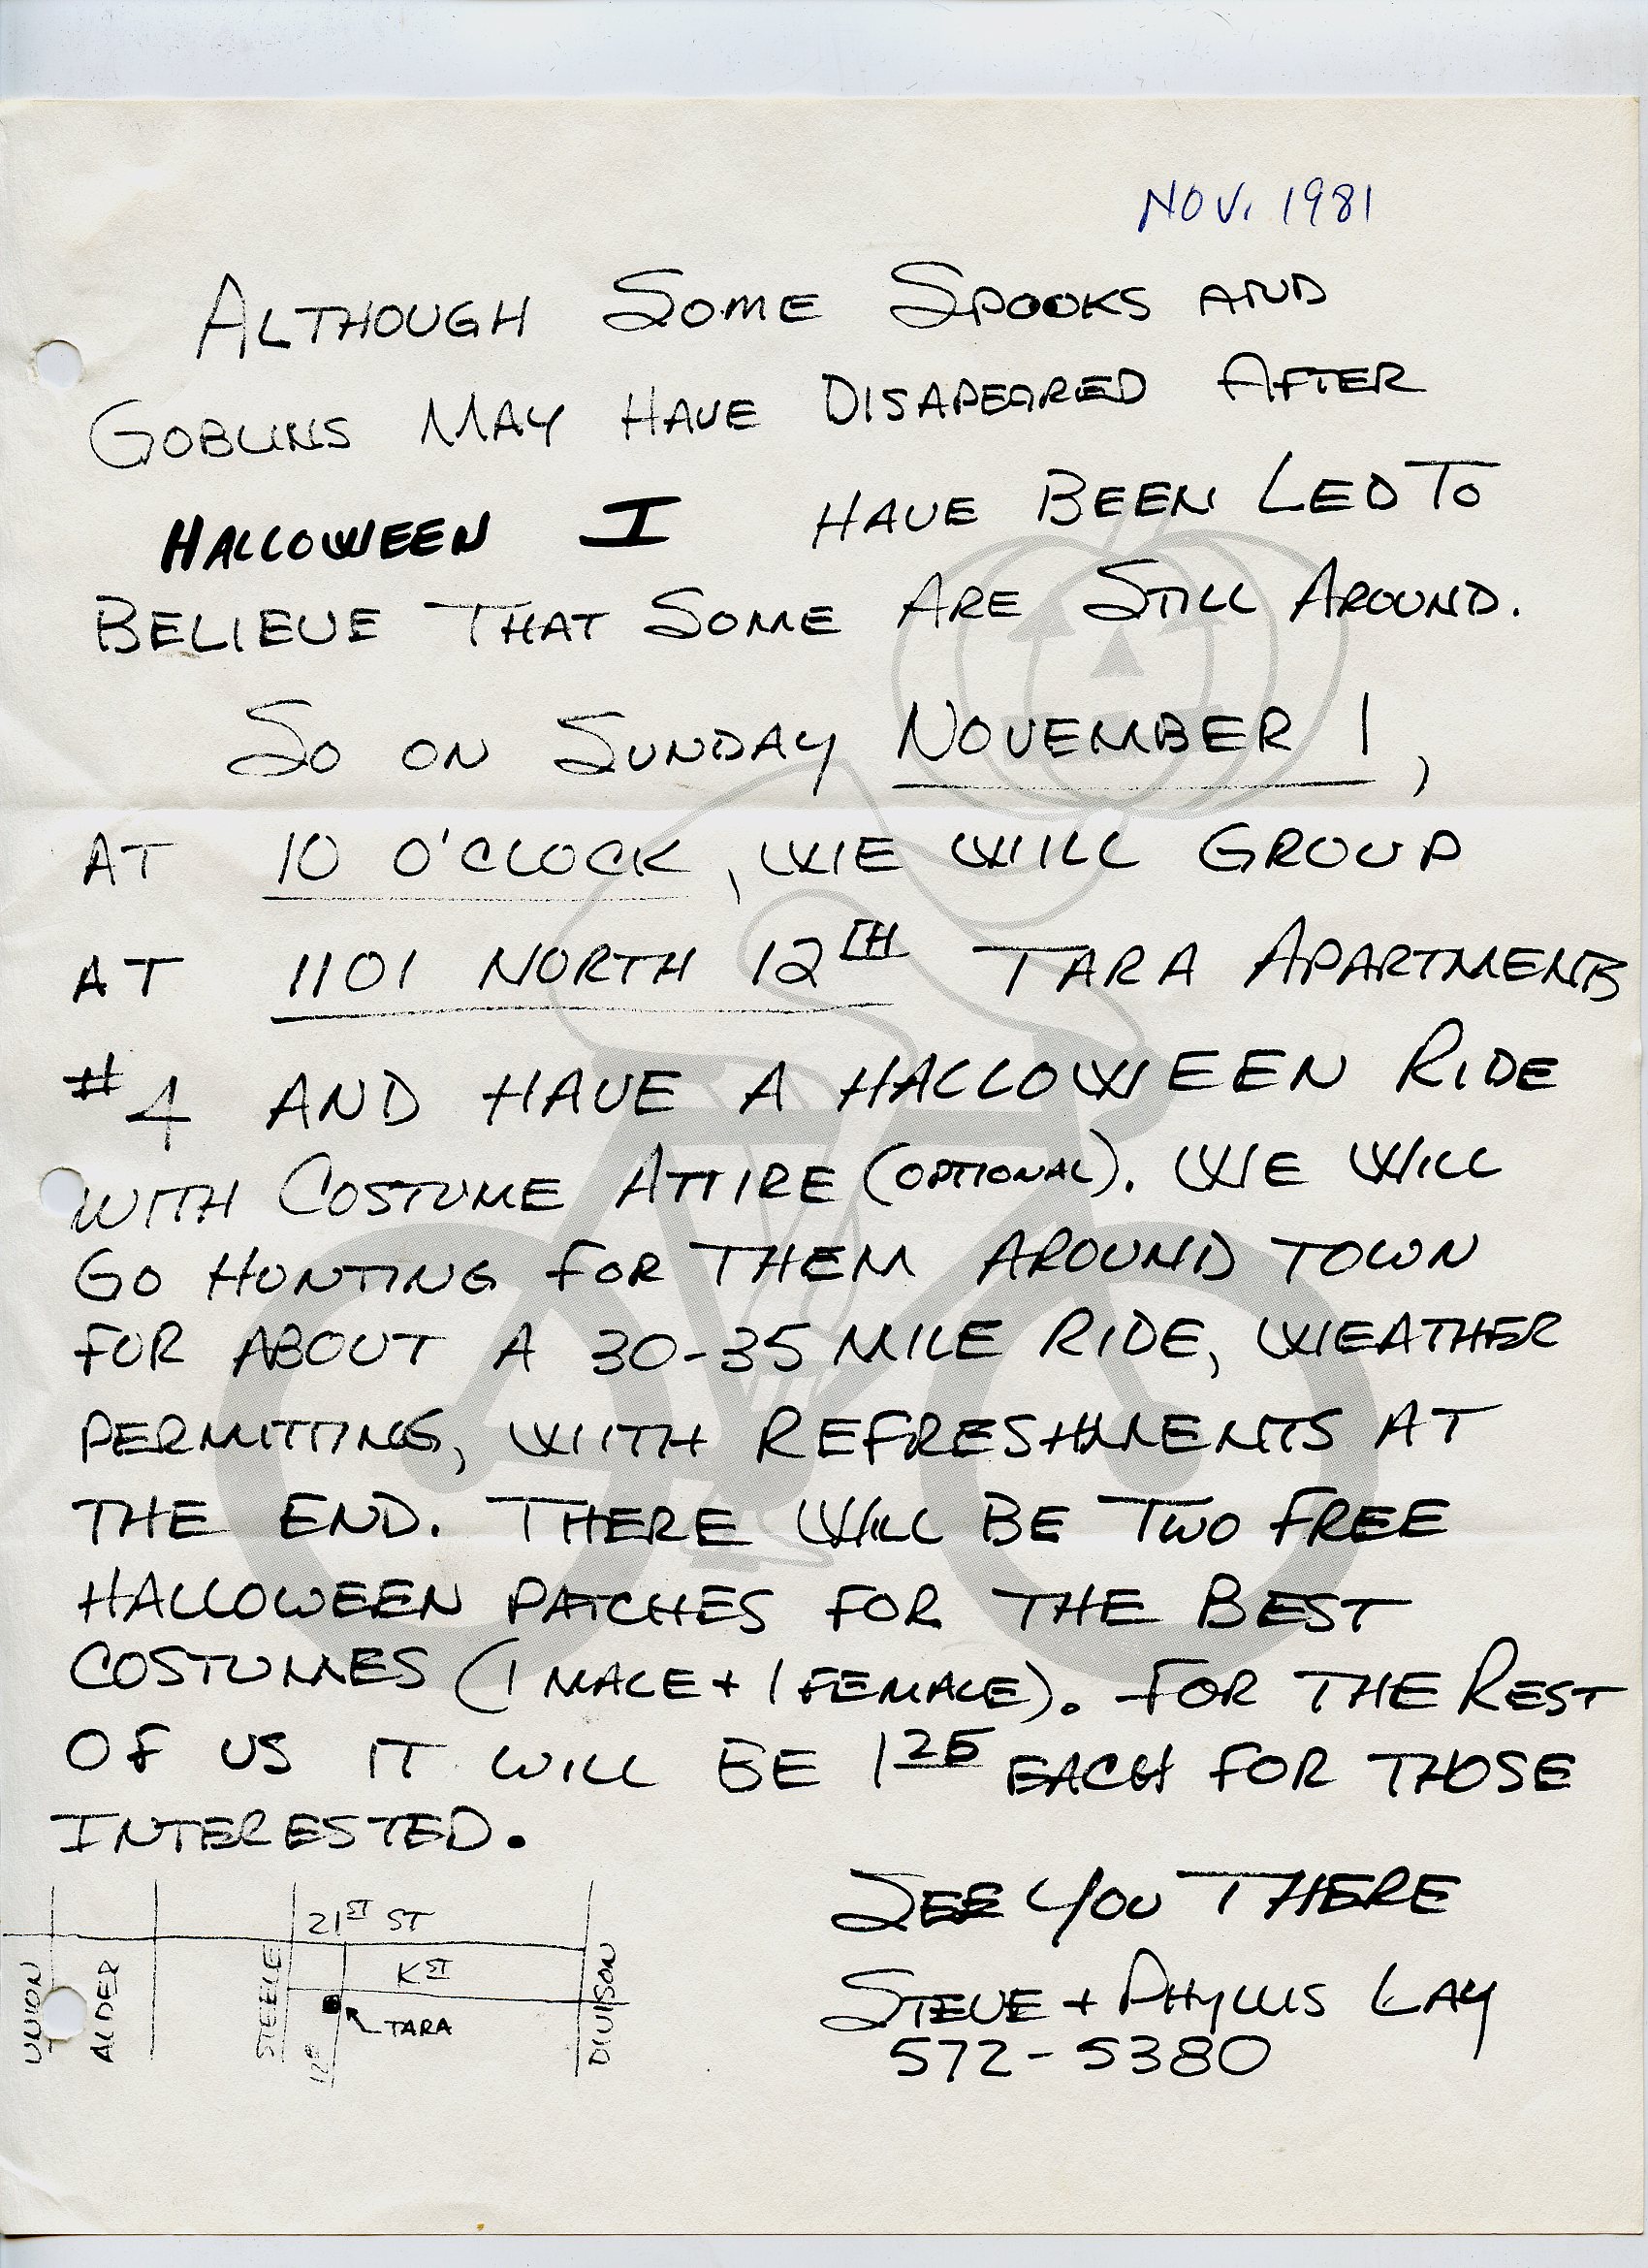 NOV. 1981
ALTHOUGH SOME SPOOKS AND
GOBLINS MAY HAVE DISAPEARED AFTER
HALLOWEEN I HAVE BEEN LED TO
BELIEVE THAT SOME ARE STILL AROUND.
SO ON SUNDAY NOVEMBER 1,
AT 10 O'CLOCK, WE WILL GROUP
AT 1101 NORTH 12TH TARA APARTMENTS
#4 AND HAVE A HALLOWEEN RIDE
WITH COSTUME ATTIRE (OPTIONAL). WE WILL
GO HUNTING FOR THEM AROUND TOWN
FOR ABOUT A 30-35 MILE RIDE, WEATHER
PERMITTING, WITH REFRESHMENTS AT
THE END. THERE WILL BE TWO FREE
HALLOWEEN PATCHES FOR THE BEST
COSTUMES (1 MALE + 1 FEMALE). FOR THE REST
OF US IT WILL BE 1 25 EACH FOR THOSE
INTERESTED.
SEE YOU THERE
STEVE + PHYLLIS LAY
572-5380
21ST ST
K ST
UNION
ALDER
STEELE
12TH
TARA
DIVISON